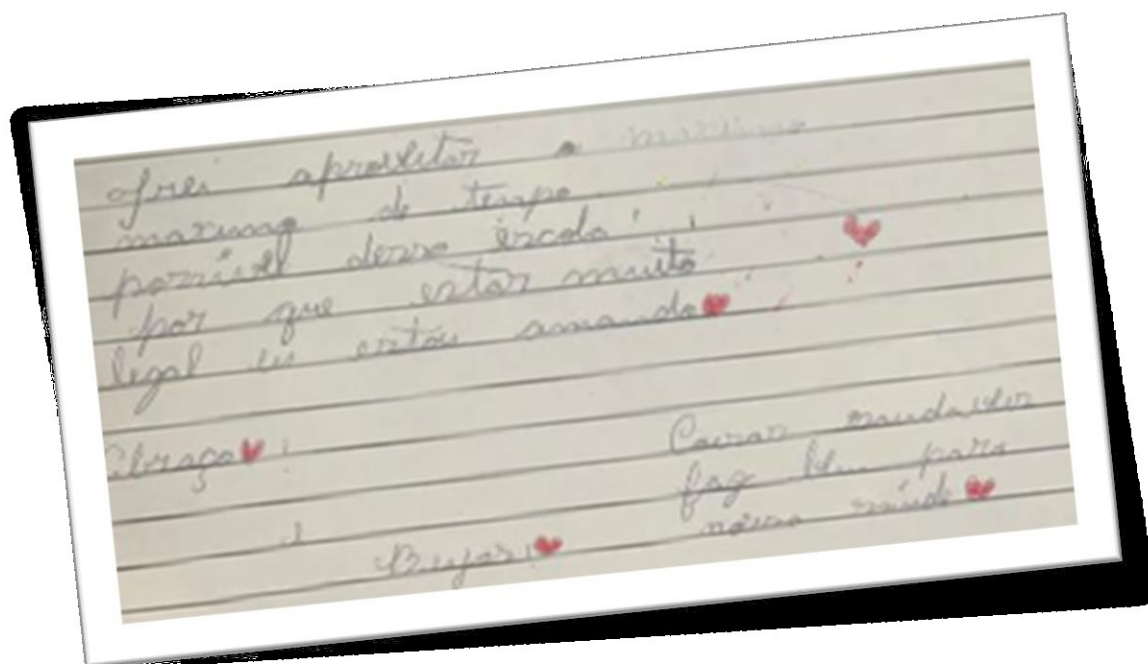 Irei aproveitar o maximo
maximo de tempo
possível dessa escola!
por que estar muito
legal eu estou amando
Abraços!
Beijos!
Coisas saudaveis
faz bem para
nossa saúde